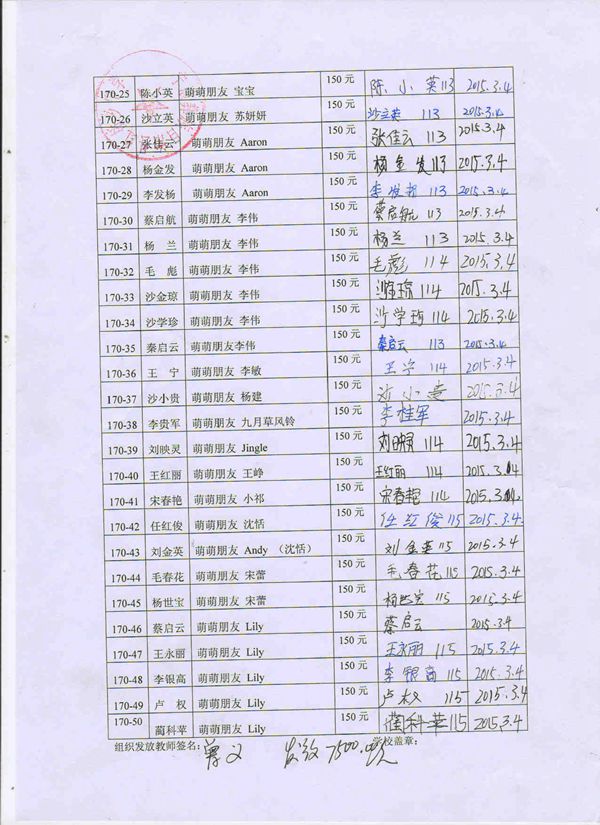 170-25 陈小英 萌萌朋友 宝宝 150 元 陈小英 113 2015.3.4
170-26 沙立英 萌萌朋友 苏妍妍 150 元 沙立英 113 2015.3.4
170-27 张佳云 萌萌朋友 Aaron 150 元 张佳云 113 2015.3.4
170-28 杨金发 萌萌朋友 Aaron 150 元 杨金发 113 2015.3.4
170-29 李发杨 萌萌朋友 Aaron 150 元 李发 113 2015.3.4
170-30 蔡启航 萌萌朋友 李伟 150 元 蔡启航 113 2015.3.4
170-31 杨 兰 萌萌朋友 李伟 150 元 杨兰 113 2015.3.4
170-32 毛 彪 萌萌朋友 李伟 150 元 毛彪 114 2015.3.4
170-33 沙金琼 萌萌朋友 李伟 150 元 沙金琼 114 2015.3.4
170-34 沙学珍 萌萌朋友 李伟 150 元 沙学珍 114 2015.3.4
170-35 秦启云 萌萌朋友李伟 150 元 秦启云 113 2015.3.4
170-36 王 宁 萌萌朋友 李敏 150 元 王宁 114 2015.3.4
170-37 沙小贵 萌萌朋友 杨建 150 元 沙小贵 2015.3.4
170-38 李贵军 萌萌朋友 九月草风铃 150 元 李桂军 2015.3.4
170-39 刘映灵 萌萌朋友 Jingle 150 元 刘映灵 114 2015.3.4
170-40 王红丽 萌萌朋友 王峥 150 元 王红丽 114 2015.3.4
170-41 宋春艳 萌萌朋友 小祁 150 元 宋春艳 114 2015.3.4
170-42 任红俊 萌萌朋友 沈恬 150 元 任红俊 115 2015.3.4
170-43 刘金英 萌萌朋友 Andy（沈恬） 150 元 刘金英 115 2015.3.4
170-44 毛春花 萌萌朋友 宋蕾 150 元 毛春花 115 2015.3.4
170-45 杨世宝 萌萌朋友 宋蕾 150 元 杨世宝 115 2015.3.4
170-46 蔡启云 萌萌朋友 Lily 150 元 蔡启云 2015.3.4
170-47 王永丽 萌萌朋友 Lily 150 元 王永丽 115 2015.3.4
170-48 李银高 萌萌朋友 Lily 150 元 李银高 115 2015.3.4
170-49 卢 权 萌萌朋友 Lily 150 元 卢权 115 2015.3.4
170-50 蔺科苹 萌萌朋友 Lily 150 元 蔺科苹 115 2015.3.4
组织发放教师签名： 发放 7500.00元 学校盖章：